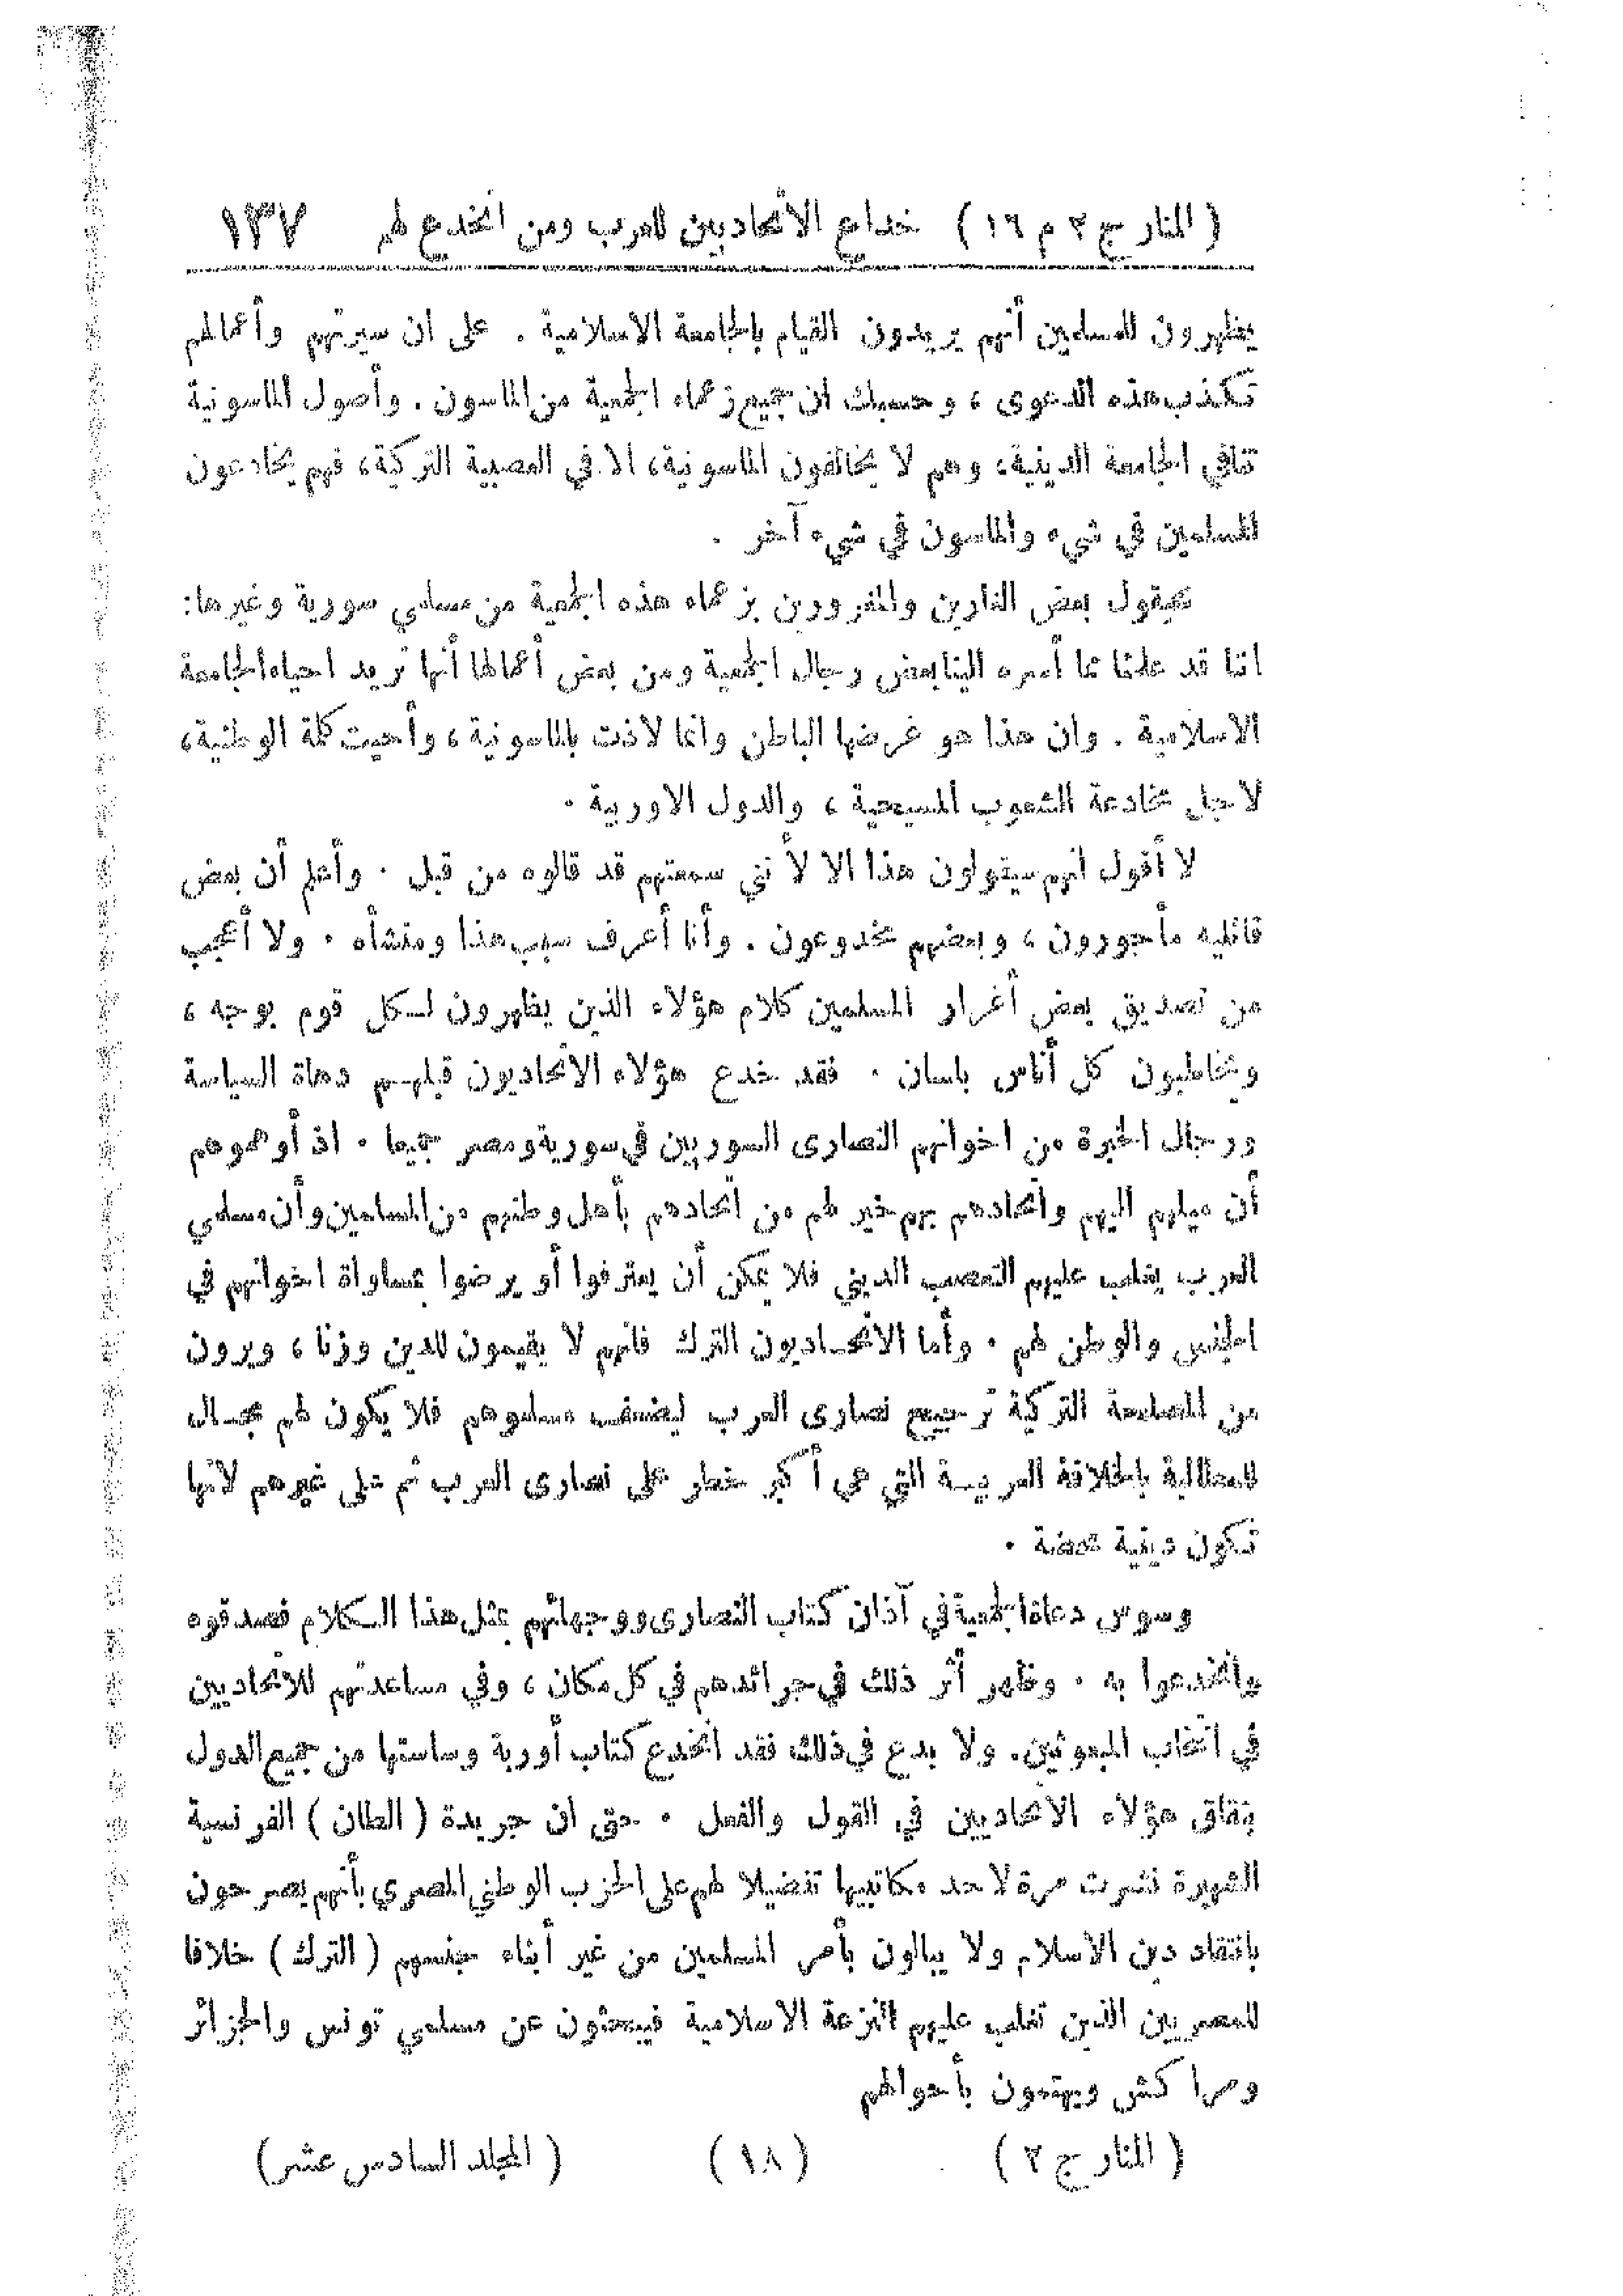 ( المنار ج ٢ م ١٦ ) خداع الاتحاديين للعرب ومن انخدع لهم ١٣٧
يظهرون للمسلمين أنهم يريدون القيام بالجامعة الاسلامية . على ان سيرتهم وأعمالهم
تكذب هذه الدعوى ، وحسبك ان جميع زعماء الجمعية من الماسون . وأصول الماسونية
تنافي الجامعة الدينية، وهم لا يخالفون الماسونية، الا في العصبية التركية، فهم يخادعون
المسلمين في شيء والماسون في شيء آخر .
سيقول بعض الغارين والمغرورين بزعماء هذه الجمعية من مسلمي سورية وغيرها:
اننا قد علمنا مما أسره الينا بعض رجال الجمعية ومن بعض أعمالها أنها تريد احياء الجامعة
الاسلامية . وان هذا هو غرضها الباطن وانما لاذت بالماسونية ، وأحيت كلمة الوطنية،
لاجل مخادعة الشعوب المسيحية ، والدول الاوربية .
لا أقول انهم سيقولون هذا الا لأنني سمعتهم قد قالوه من قبل . وأعلم أن بعض
قائليه مأجورون ، وبعضهم مخدوعون . وأنا أعرف سبب هذا ومنشأه . ولا أعجب
من تصديق بعض أغرار المسلمين كلام هؤلاء الذين يظهرون لكل قوم بوجه ،
ويخاطبون كل أناس بلسان . فقد خدع هؤلاء الاتحاديون قبلهم دهاة السياسة
ورجال الخبرة من اخوانهم النصارى السوريين في سورية ومصر جميعا . اذ أوهموهم
أن ميلهم اليهم واتحادهم بهم خير لهم من اتحادهم بأهل وطنهم من المسلمين وأن مسلمي
العرب يغلب عليهم التعصب الديني فلا يمكن أن يعترفوا أو يرضوا بمساواة اخوانهم في
الجنس والوطن لهم . وأما الاتحاديون الترك فانهم لا يقيمون للدين وزنا ، ويرون
من المصلحة التركية ترجيح نصارى العرب ليضعف مسلموهم فلا يكون لهم مجال
للمطالبة بالخلافة العربية التي هي أكبر خطر على نصارى العرب ثم على غيرهم لأنها
تكون دينية محضة .
وسوس دعاة الجمعية في آذان كتاب النصارى ووجهائهم بمثل هذا الكلام فصدقوه
وانخدعوا به . وظهر أثر ذلك في جرائدهم في كل مكان ، وفي مساعدتهم للاتحاديين
في انتخاب المبعوثين. ولا بدع في ذلك فقد انخدع كتاب أوربة وساستها من جميع الدول
بنفاق هؤلاء الاتحاديين في القول والفعل . حتى ان جريدة ( الطان ) الفرنسية
الشهيرة نشرت مرة لاحد مكاتبيها تفضيلا لهم على الحزب الوطني المصري بأنهم يصرحون
بانتقاد دين الاسلام ولا يبالون بأمر المسلمين من غير أبناء جنسهم ( الترك ) خلافا
للمصريين الذين تغلب عليهم النزعة الاسلامية فيبحثون عن مسلمي تونس والجزائر
ومراكش ويهتمون بأحوالهم
( المنار ج ٢ ) ( ١٨ ) ( المجلد السادس عشر)